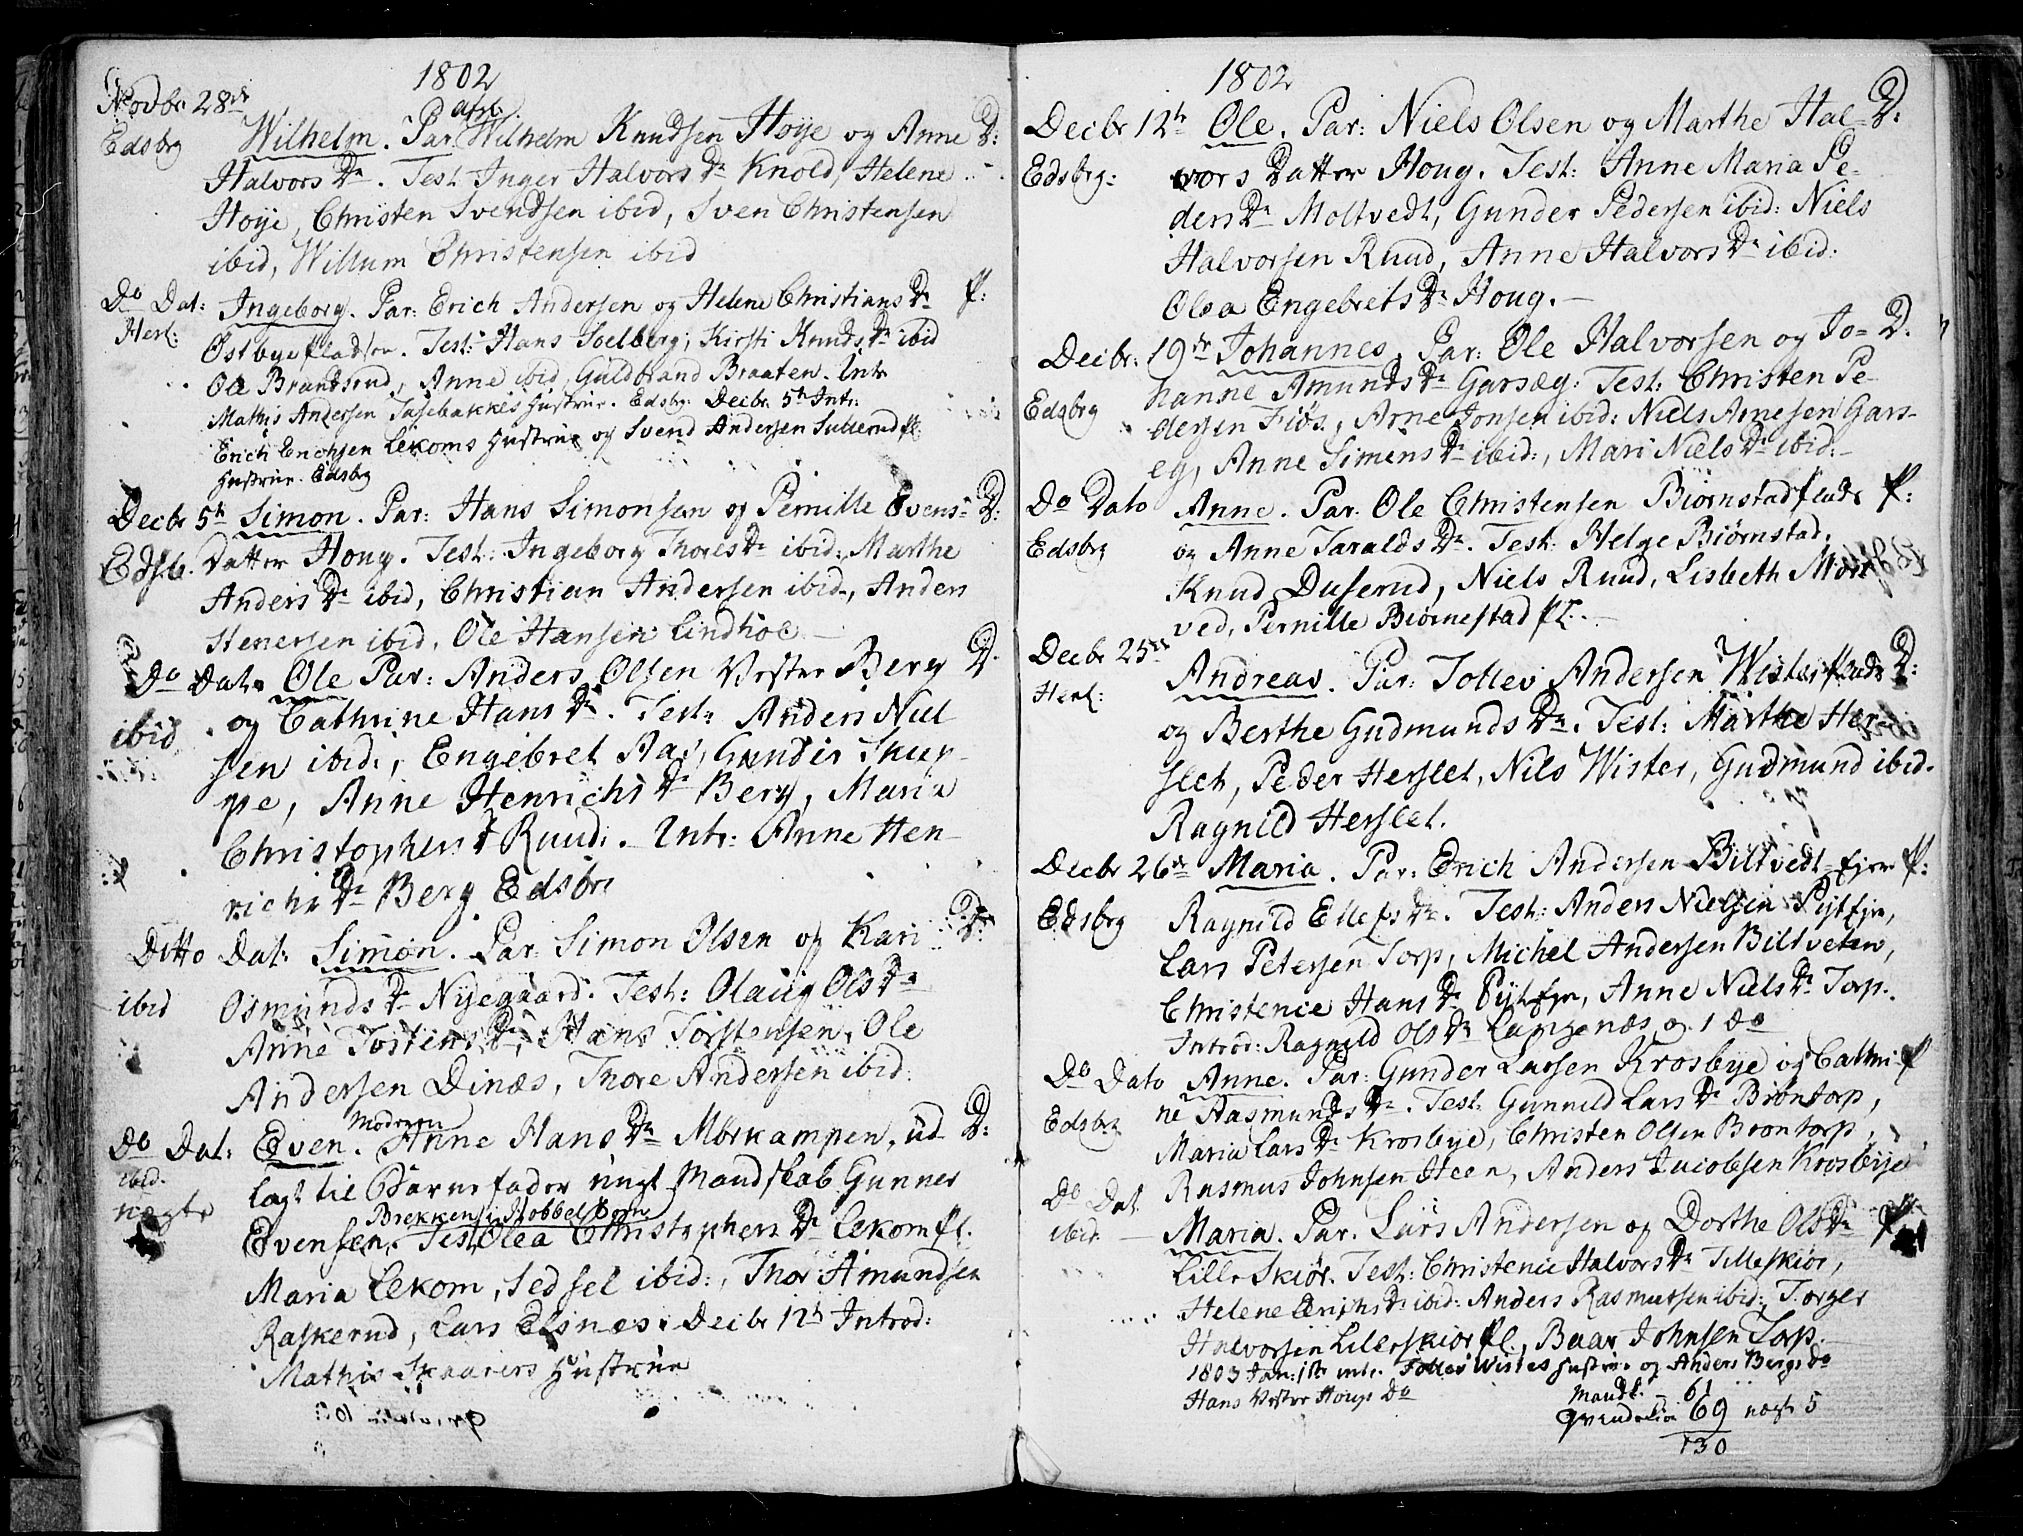 1802
Novbr 28de
afd:
Edsbrg Wilhelm. Par Wilhelm Knudsen Høye og Anne D:
Halvors Dr. Test: Inger Halvors Dr Knold, Helene
Høye, Christen Svendsen ibid, Sven Christensen
ibid, Willum Christensen ibid
Do Dat: Ingeborg. Par: Erich Andersen og Helene Christians Dr P:
Herl: Østbyepladsen. Test: Hans Soelberg, Kirsti Knuds Dr ibid
Ole Brandsrud, Anne ibid, Guldbrand Braaten. Intr
Mathis Andersen Hustrue. Edsbr: Decbr 5th Intr:
Erich Erichsen Lekoms Hustrue og Svend Andersen Sullerud pl
Hustrue. Edsbrg
Decbr 5th Simon. Par: Hans Simonsen og Pernille Evens= D:
Edsb. Datter Houg. Test: Ingeborg Thores Dr ibid: Marthe
Anders Dr ibid, Christian Andersen ibid, Anders
ibid, Ole Hansen Lindhoe
Do Dat: Ole Par: Anders Olsen Vester Berg D.
ibid og Cathrine Hans Dr. Test: Anders Niel
sen ibid:, Engebret Aas, Gunder Skup-
pe, Anne Henrichs Dr Berg, Maria
Christophers D Ruud. Intr: Anne Hen-
richs Dr Berg Edsbr
Ditto Dat: Simon. Par: Simon Olsen og Kari D:
ibid Osmunds Dr Nyegaard. Test: Olaug Ols Dr
Anne Tostens Dr, Hans Torstensen, Ole
Andersen Dinæs, Thore Andersen ibid.
Moderen
Do Dat: Even. Anne Hans Dr Mørkampen, ud D:
ibid. lagt til Barnefader ungt Mandskab Gunner
nægte Brekken i Slobbel Eyen
Evensen. Test Olea Christophers Dr Lekom pl.
Maria Lekom, Sedsel ibid:, Thor Amundsen
Raskerud, Lars Elsnes: Decbr 12th Introd:
Mathis Skaarers Hustrue
1802
Decbr 12th Ole. Par: Niels Olsen og Marthe Hal= D:
Edsbrg: vors Datter Houg. Test: Anne Maria Pe-
ders Dr Moltvedt, Gunder Pedersen ibid: Niels
Halvorsen Ruud, Anne Halvors Dr ibid:
Olea Engebrets Dr Houg.
Decbr: 19de Johannes, Par: Ole Halvorsen og Jo= D.
hanne Amunds Dr Garsæg: Test: Christen Pe-
Edsbrg dersen Fiøs, Arne Jonsen ibid: Niels Arnesen Gars-
eg, Anne Simens Dr ibid:, Mari Niels Dr ibid:
Do Dato Anne. Par. Ole Christensen Biørnstad plads P:
Edsbrg og Anne Taralds Dr. Test: Helge Biørnstad,
Knud Duserud, Niels Ruud, Lisbeth
ved, Pernille Biørnestad pl.
Decbr 25de
Andreas. Par: Tollev Andersen Wister plads D:
Herl: og Berthe Gudmunds Dr. Test: Marthe Her-
slet, Peder Herslet, Nils Wister, Gudmund ibid.
Ragnild Herslet.
Decbr 26de Maria. Par: Erich Andersen Biltvedt-ejer P:
Edsbrg Ragnild Ellefs Dr. Test: Anders Nielsen
Lars Petersen Torp, Michel Andersen Biltveten,
Christence Hans Dr, Anne Niels Dr Torp.
Introd: Ragnild Ols Dr Langenæs og 1 do
Do Dato Anne. Par: Gunder Larsen Krosbye og Cathri P
Edsbrg ne Aasmunds Dr. Test: Gunnild Lars Dr Brøntorp,
Maria Lars Dr Krosbye, Christen Olsen Brøntorp,
Rasmus Johnsen Heen, Anders Jacobsen Krosbye
Do Dat
ibid Maria. Par. Lars Andersen og Dorthe Ols Dr P
Lille Skiør. Test: Christence Halvors Dr Lilleskiør,
Helene Erichs Dr ibid: Anders Rasmussen ibid:, Torger
Halvorsen Lilleskiør pl., Baar Johnsen Torp.
1803 Jan: 1ste intr. Tollev Wisters Hustrue og Anders Bergs do
Hans Vester Hougs Do
Mandk. 61
Qvindekiøn 69 nægte 5
130